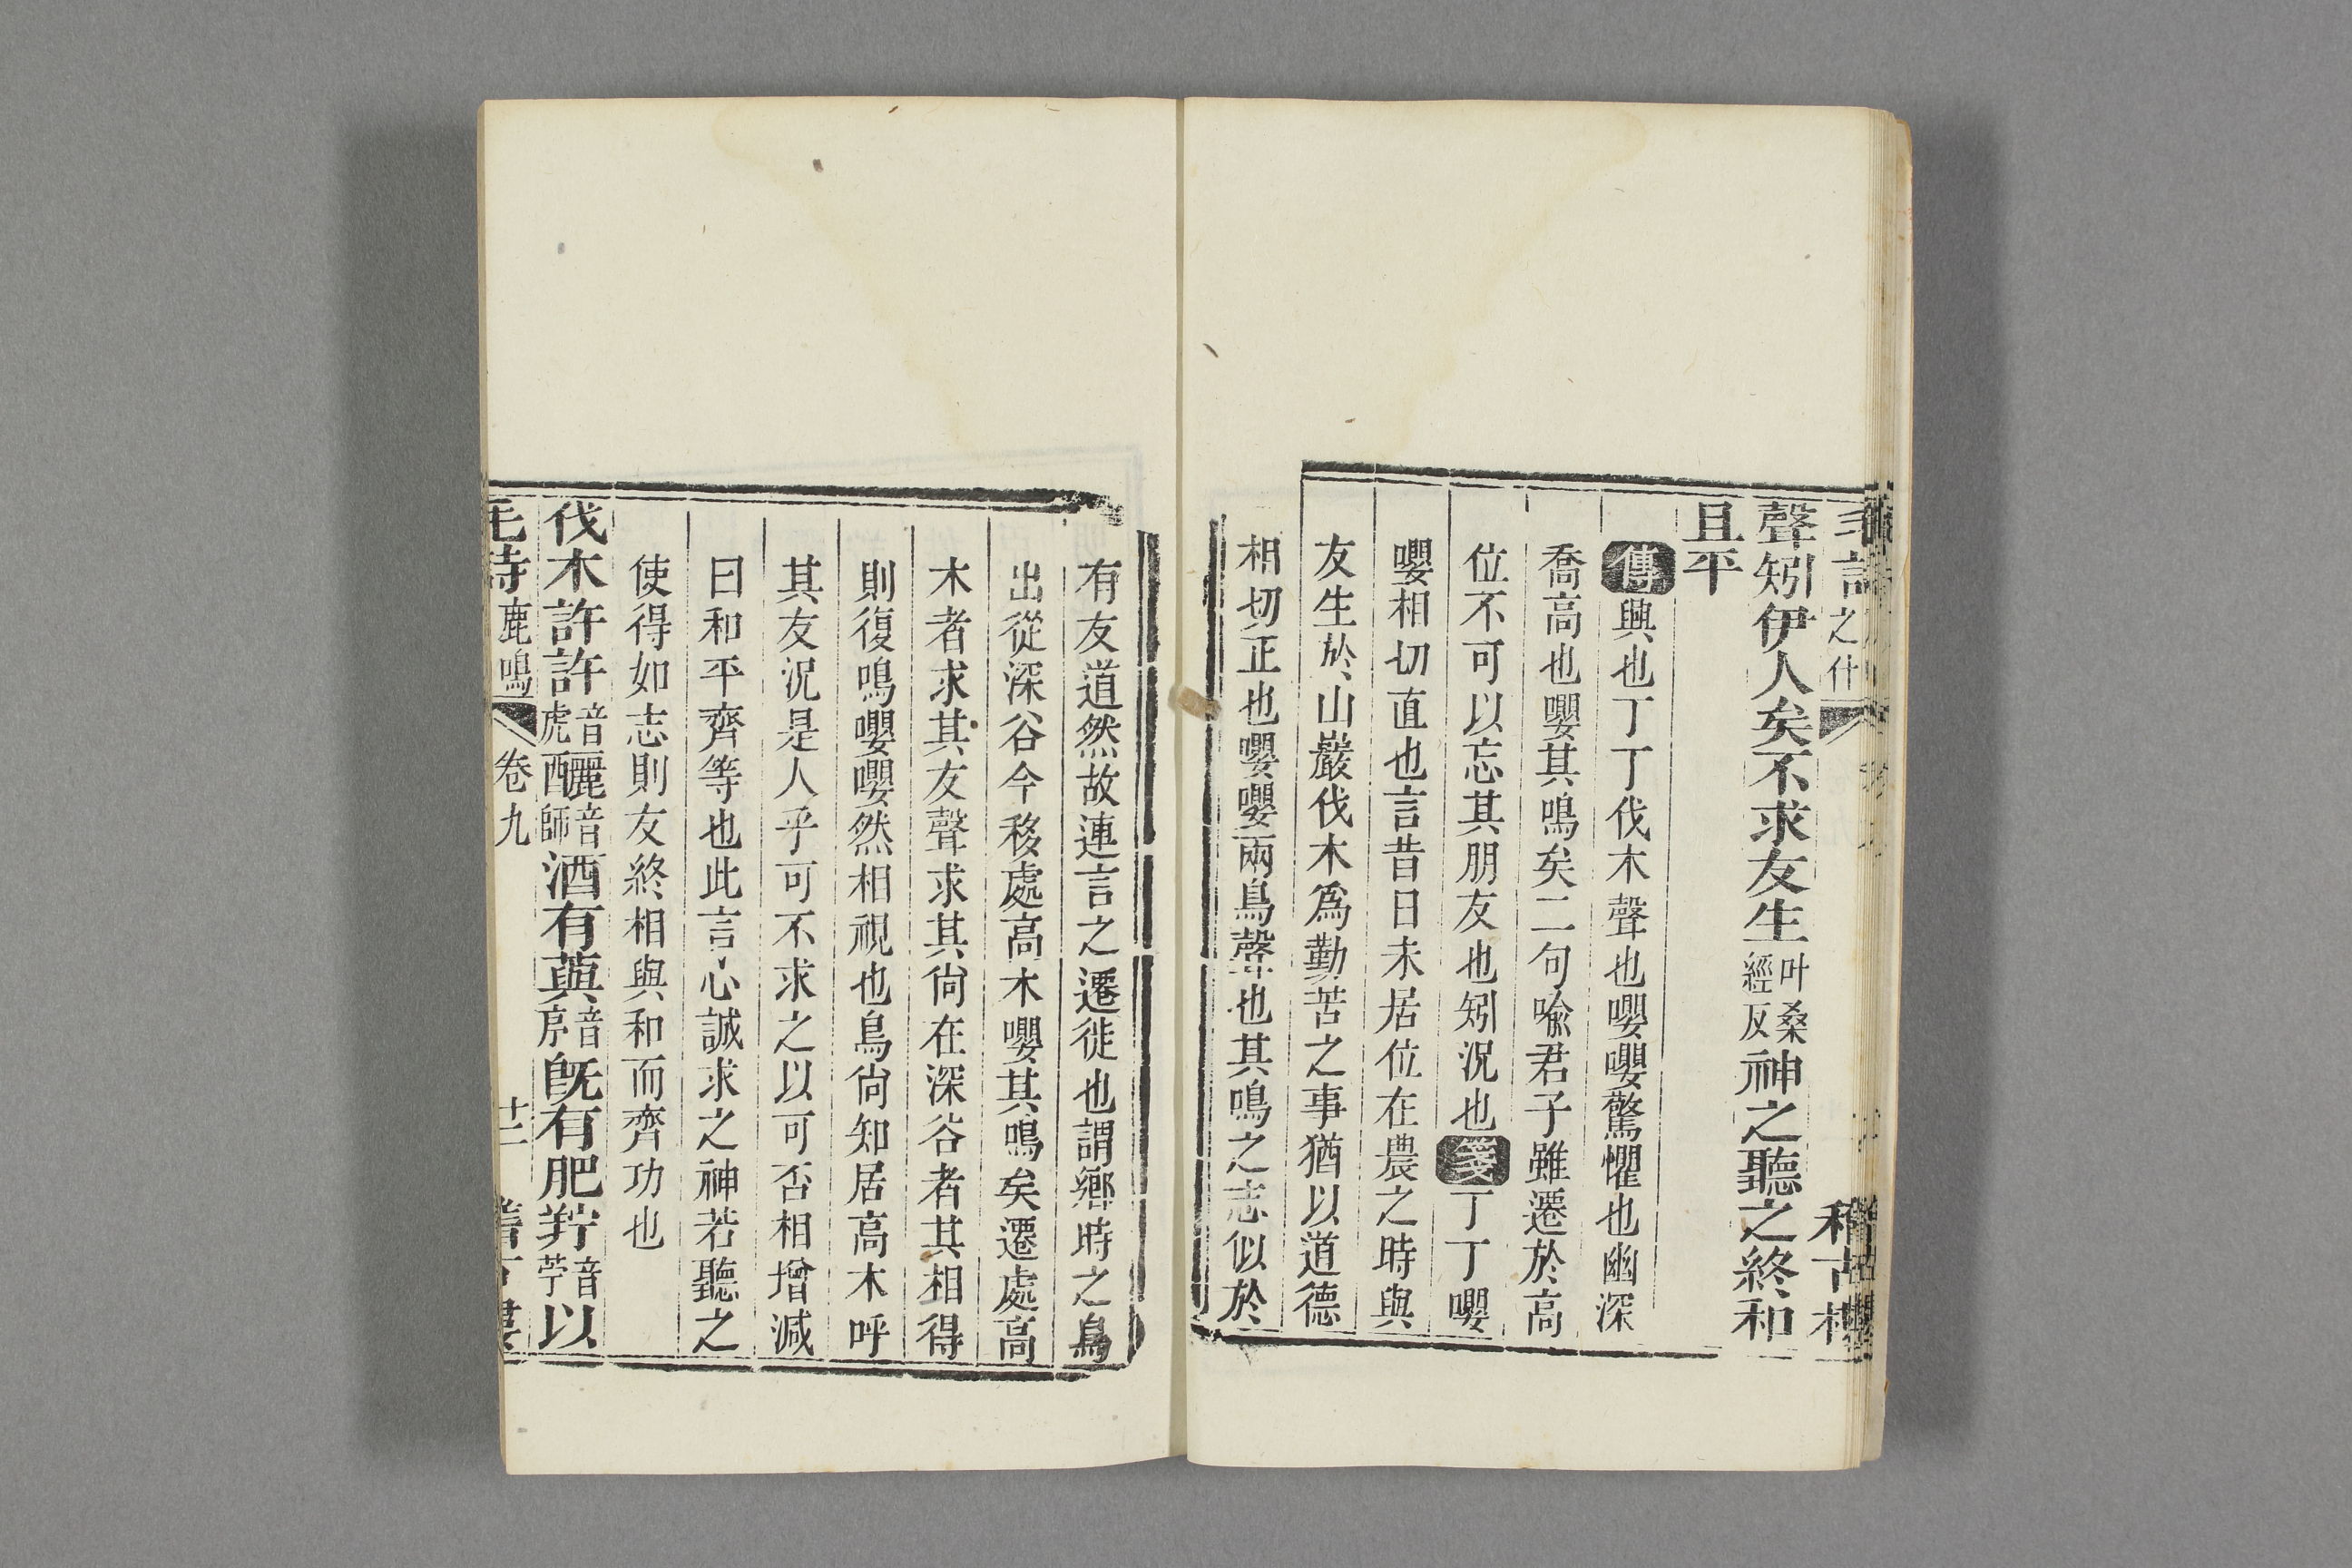 之什
聲矧伊人矣不求友生叶桑經反神之聽之終和
且平
傳興也丁丁伐木聲也嚶嚶驚懼也幽深
喬高也嚶其鳴矣二句喻君子雖遷於高
位不可以忘其朋友也矧況也箋丁丁嚶
嚶相切直也言昔日未居位在農之時與
友生於山巖伐木爲勤苦之事猶以道德
相切正也嚶嚶兩鳥聲也其鳴之志似於
有友道然故連言之遷徙也謂鄉時之鳥
出從深谷今移處高木嚶其鳴矣遷處高
木者求其友聲求其尙在深谷者其相得
則復鳴嚶嚶然相視也鳥尙知居高木呼
其友況是人乎可不求之以可否相增減
曰和平齊等也此言心誠求之神若聽之
使得如志則友終相與和而齊功也
伐木許許音虎釃音師酒有藇音序旣有肥羜音苧以
毛詩鹿鳴 卷九 十二